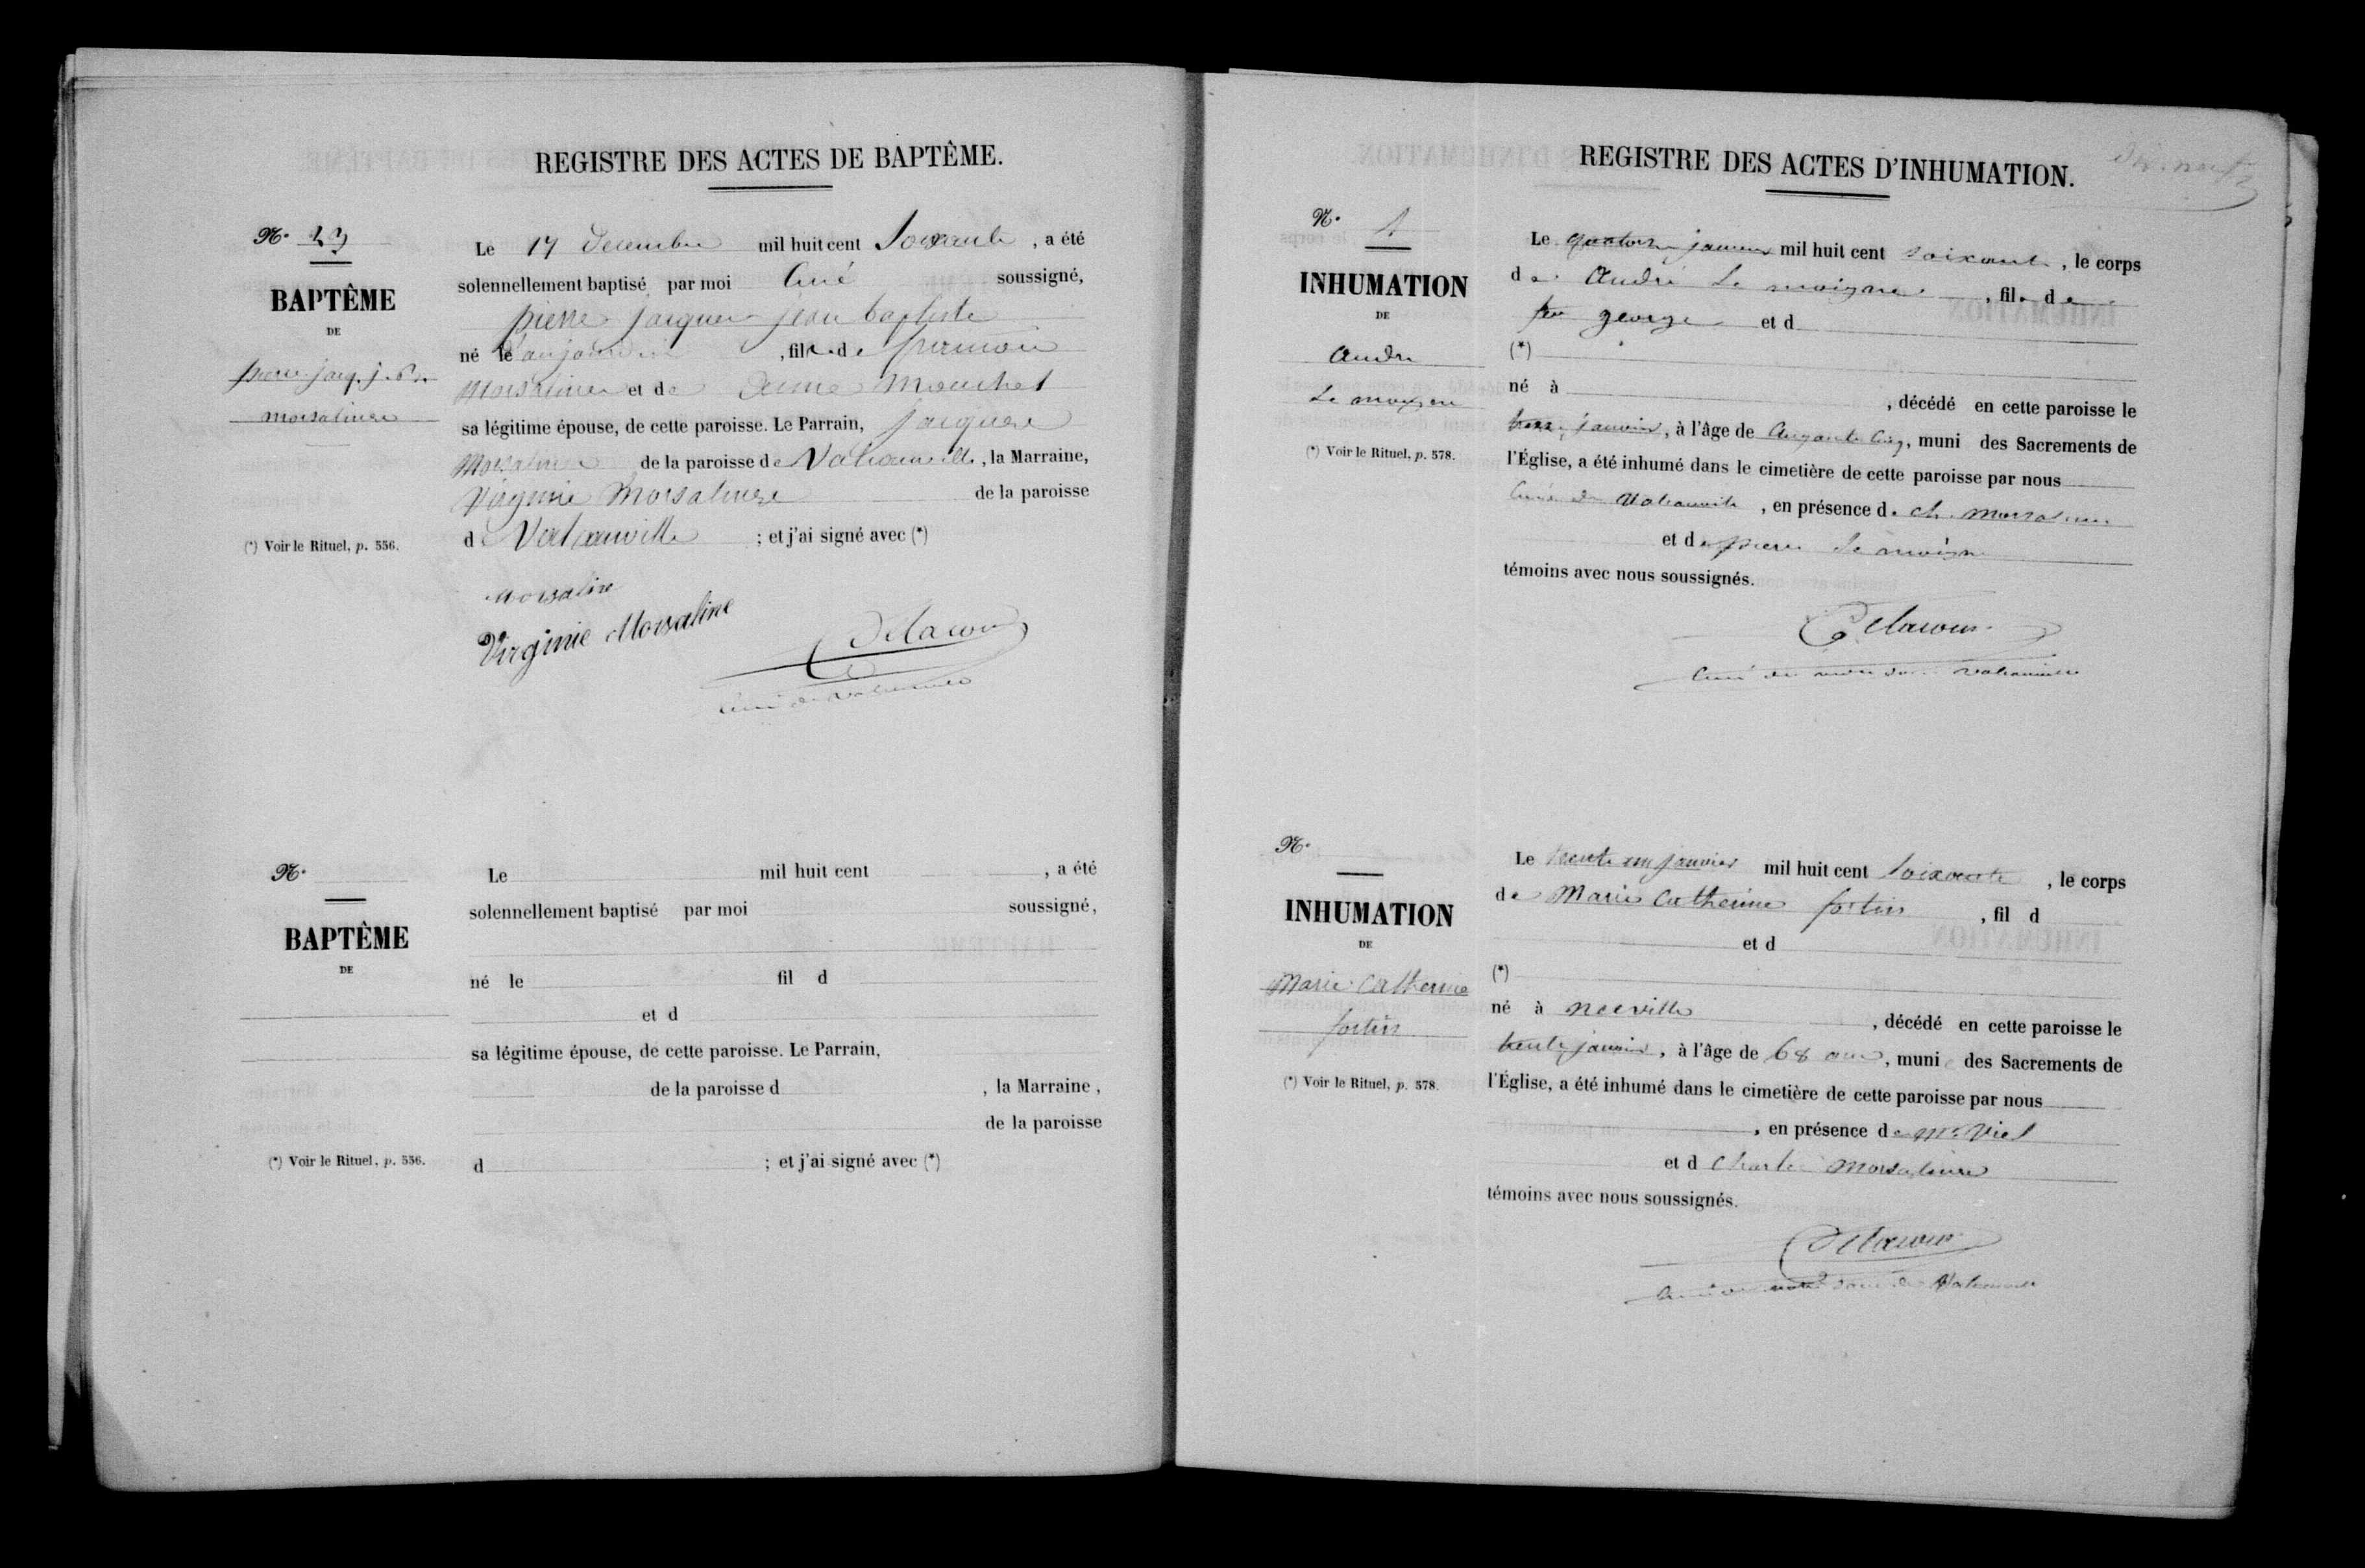 REGISTRE DES ACTES DE BAPTÊME.
N° 23
BAPTÊME
DE
pierre jacq. j. b.
morsaline
(*) Voir le Rituel, p. 556.
Le 17 decembre mil huit cent Soixante, a été
solennellement baptisé par moi Curé soussigné,
pierre jacques jean baptiste
né le aujourd'hui, fils de
Morsaline et de Mouchel
sa légitime épouse, de cette paroisse. Le Parrain, jacques
Morsaline de la paroisse de Valcanville, la Marraine,
Virginie Morsaline de la paroisse
de Valcanville ; et j'ai signé avec (*)
Morsaline
Virginie Morsaline
Delacour
Curé de Valcanville
N°
BAPTÊME
DE
(*) Voir le Rituel, p. 556.
Le mil huit cent , a été
solennellement baptisé par moi soussigné,
né le fil d
et d
sa légitime épouse, de cette paroisse. Le Parrain,
de la paroisse d , la Marraine,
de la paroisse
d ; et j'ai signé avec (*)
REGISTRE DES ACTES D'INHUMATION.
dix-neuf
N° 1
INHUMATION
DE
André
Le moigne
(*) Voir le Rituel, p. 578.
Le quatorze janvier mil huit cent soixante, le corps
de André Le moigne, fils de
feu george et d
(*)
né à , décédé en cette paroisse le
treize janvier, à l'âge de Cinquante Cinq, muni des Sacrements de
l'Église, a été inhumé dans le cimetière de cette paroisse par nous
Curé de Valcanville, en présence de ch. morsaline
et de pierre le moigne
témoins avec nous soussignés.
Delacour
Curé de Valcanville
N°
INHUMATION
DE
Marie Catherine
fortin
(*) Voir le Rituel, p. 578.
Le trente un janvier mil huit cent Soixante, le corps
de Marie Catherine fortin, fil d
et d
(*)
né à neville, décédé en cette paroisse le
trente janvier, à l'âge de 68 ans, munie des Sacrements de
l'Église, a été inhumé dans le cimetière de cette paroisse par nous
, en présence de Mr. Viel
et d Charles Morsaline
témoins avec nous soussignés.
Delacour
Valcanville